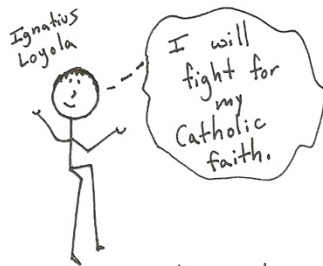 Ignatius
Loyola
I will
fight for
my
Catholic
faith.